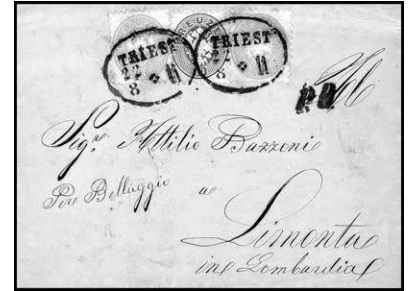 TRIEST TRIEST
22 22
8 8
11 11
P.D.
Sigr. Attilio Bazzoni
Per Bellaggio a
Limonta
in Lombardia